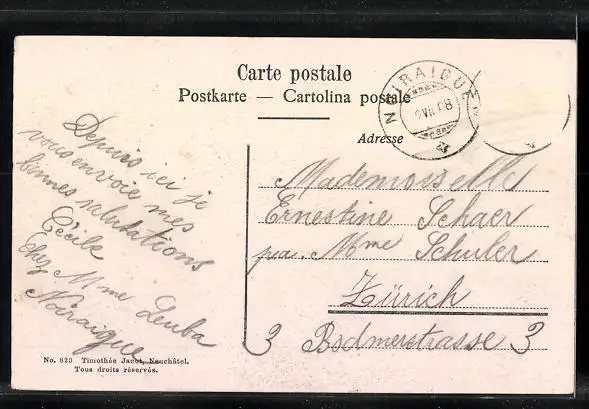 Carte postale
Postkarte — Cartolina postale
NOIRAIGUE
VII.08
Adresse
Depuis ici je
vous envoie mes
bonnes salutations
Cécile
chez Mme Leuba
Noiraigue
Mademoiselle
Ernestine Schaer
pa. Mme Schuler
Zürich
3 Bodmerstrasse 3
No. 823 Timothée Jacot, Neuchâtel.
Tous droits réservés.